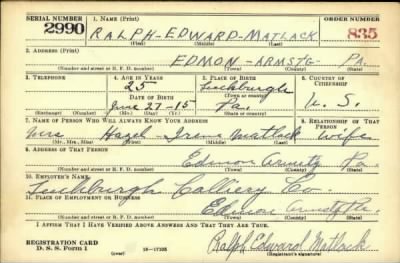 SERIAL NUMBER 1. NAME (Print) ORDER NUMBER
2990 RALPH-EDWARD-MATLACK 835
(First) (Middle) (Last)
2. ADDRESS (Print)
EDMON-ARMSTG- PA.
(Number and street or R. F. D. number) (Town) (County) (State)
3. TELEPHONE 4. AGE IN YEARS 5. PLACE OF BIRTH 6. COUNTRY OF CITIZENSHIP
25 Leechburgh
DATE OF BIRTH (Town or county)
June 27-15 Pa. U. S.
(Exchange) (Number) (Mo.) (Day) (Yr.) (State or country)
7. NAME OF PERSON WHO WILL ALWAYS KNOW YOUR ADDRESS 8. RELATIONSHIP OF THAT PERSON
Mrs Hazel-Irene Matlack Wife
(Mr., Mrs., Miss) (First) (Middle) (Last)
9. ADDRESS OF THAT PERSON
Edmon Armstg Pa.
(Number and street or R. F. D. number) (Town) (County) (State)
10. EMPLOYER'S NAME
Leechburgh Colliery Co.
11. PLACE OF EMPLOYMENT OR BUSINESS
Edmon Armstg Pa.
(Number and street or R. F. D. number) (Town) (County) (State)
I AFFIRM THAT I HAVE VERIFIED ABOVE ANSWERS AND THAT THEY ARE TRUE.
REGISTRATION CARD
D. S. S. Form 1 (over) 16-17105 Ralph Edward Matlack
(Registrant's signature)